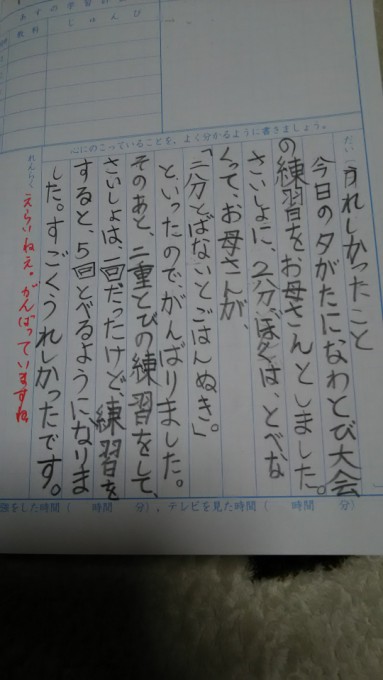 あすの学習計
教科
じゅんび
心にのこっていることを、よく分かるように書きましょう。
だい
うれしかったこと
今日の夕がたになわとび大会
の練習をお母さんとしました。
さいしょに、2分ぼくは、とべな
くって、お母さんが、
「三分とばないとごはんぬき。」
といったのでがんばりました。
そのあと、二重とびの練習をして、
さいしょは、一回だったけど、練習を
すると、5回とべるようになりま
した。すごくうれしかったです。
れんらく
えらいねえ。がんばっていますね
強をした時間（　　時間　　分）、テレビを見た時間（　　時間　　分）